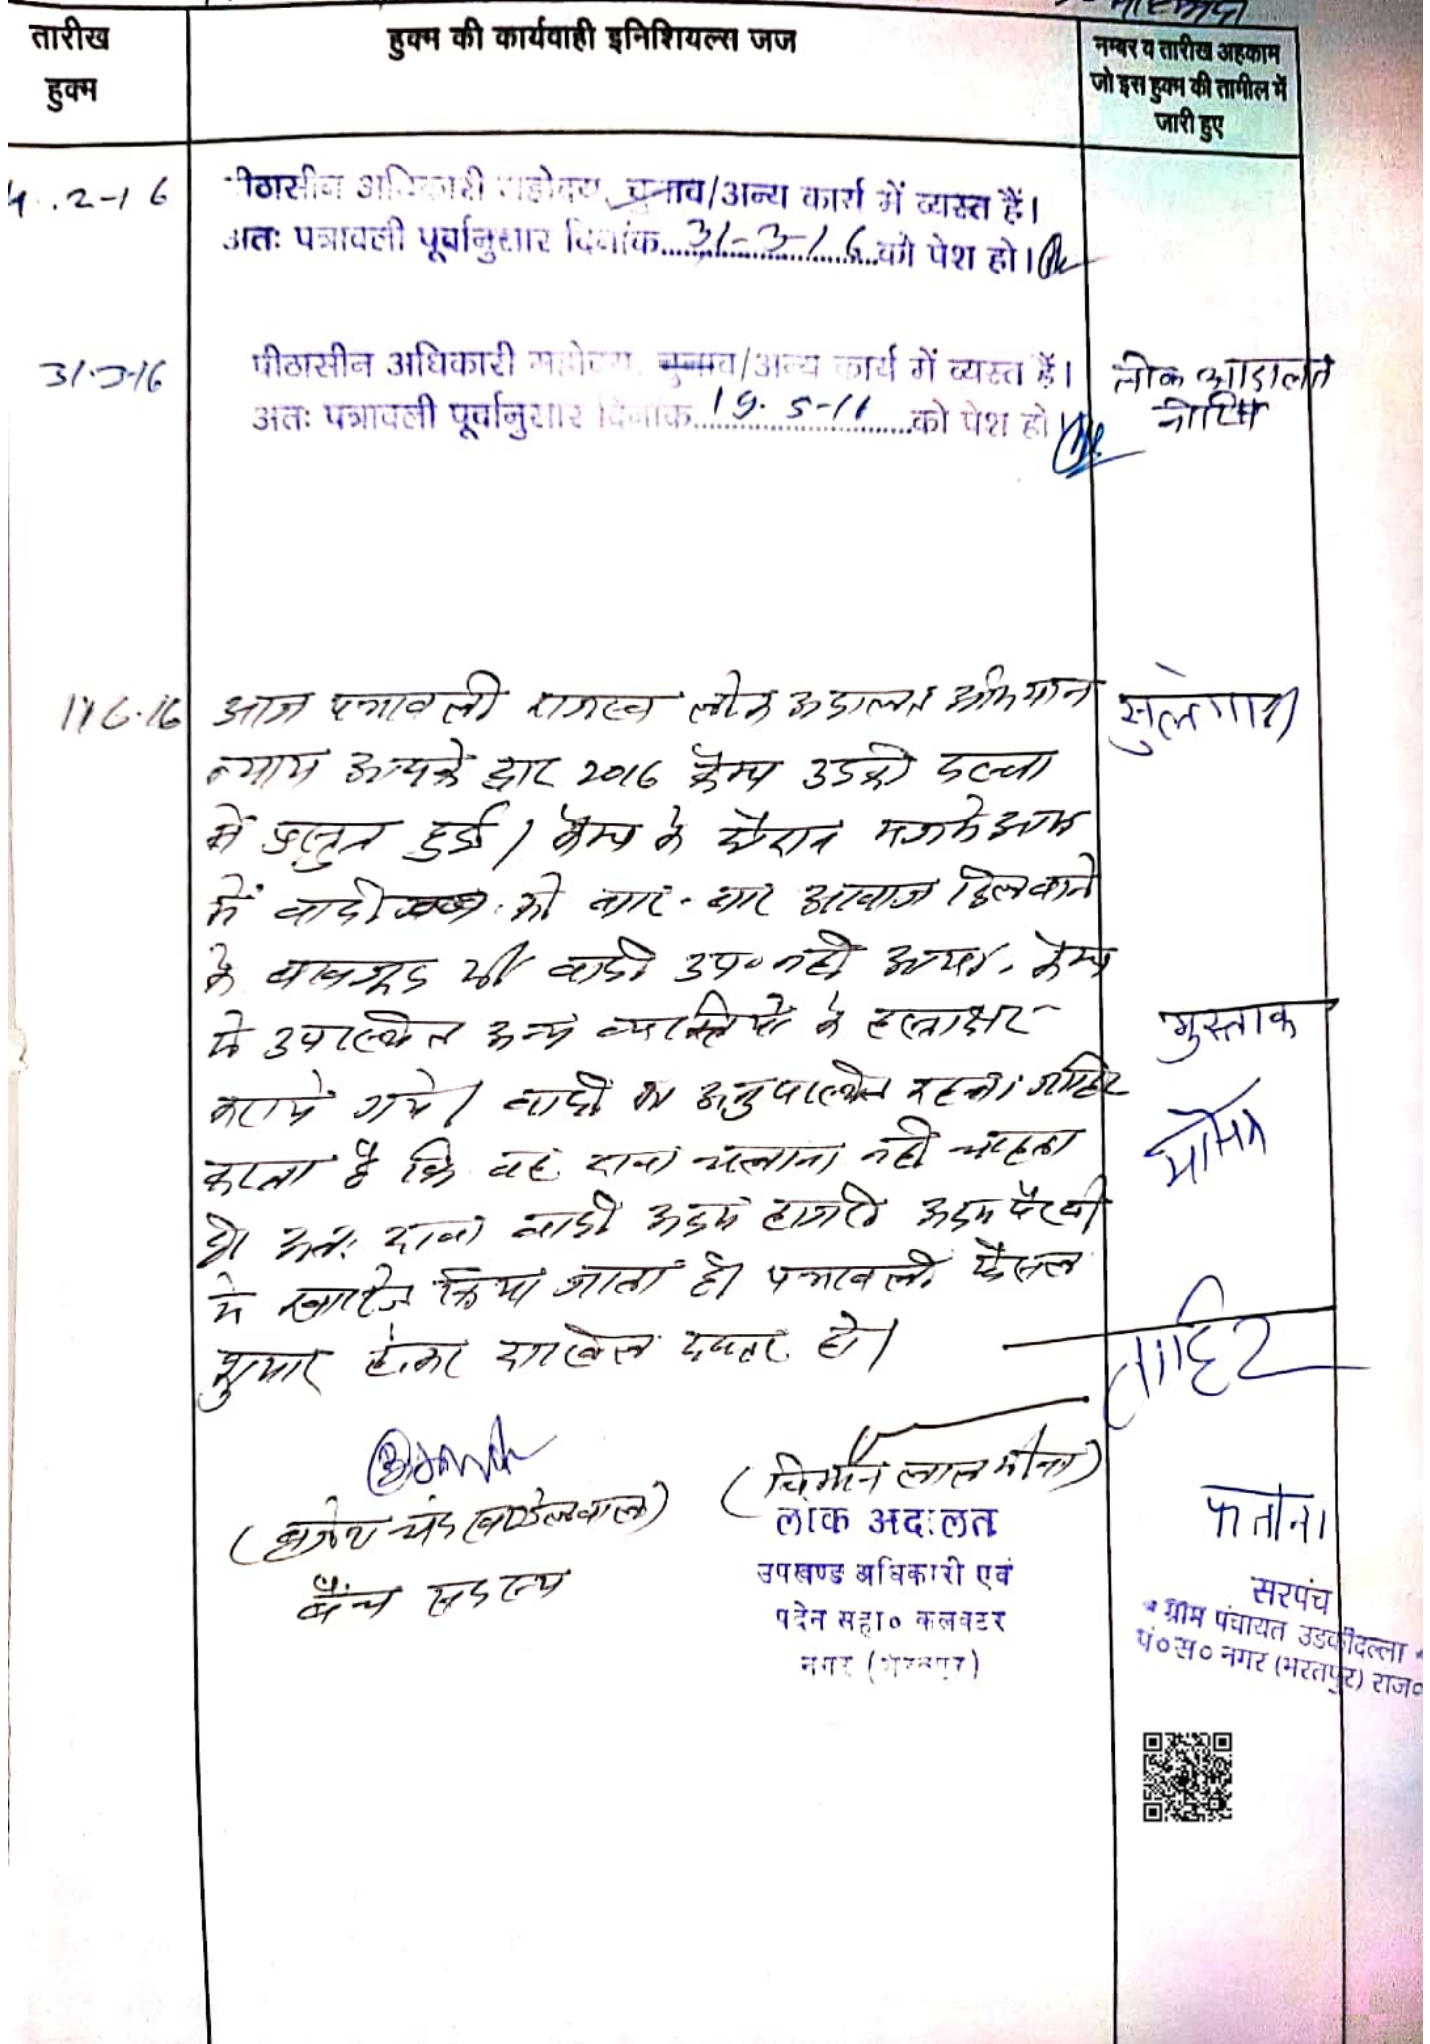 तारीख
हुक्म
हुक्म की कार्यवाही इनिशियल्स जज
नम्बर व तारीख अहकाम
जो इस हुक्म की तामील में
जारी हुए
4.2-16
पीठासीन अधिकारी महोदय चुनाव/अन्य कार्य में व्यस्त हैं।
अतः पत्रावली पूर्वानुसार दिनांक 31-3-16 को पेश हो।
31-3-16
पीठासीन अधिकारी महोदय चुनाव/अन्य कार्य में व्यस्त हैं।
अतः पत्रावली पूर्वानुसार दिनांक 19-5-16 को पेश हो।
लोक अदालत
16-16
आज पत्रावली राजस्व लोक अदालत अभियान
न्याय आपके द्वार 2016 कैम्प उडकी दल्ला
में प्रस्तुत हुई। कैम्प के दौरान मजमेआम
में वादी को बार-बार आवाज दिलवाने
के बावजूद भी वादी उप० नही आया। कैम्प
मे उपस्थित अन्य व्यक्तियों के हस्ताक्षर
कराये गये। वादी का अनुपस्थित रहना जाहिर
करता है कि वह दावा चलाना नही चाहता
है। अतः दावा वादी अदम हाजरी अदम पैरवी
मे खारिज किया जाता है। पत्रावली फैसल
शुमार होकर दाखिल दफ्तर हो।
मुस्ताक
ताहिर
(चिमन लाल मीना)
लोक अदालत
उपखण्ड अधिकारी एवं
पदेन सहा० कलक्टर
नगर (भरतपुर)
(खण्डेलवाल)
बैंच सदस्य
सरपंच
ग्राम पंचायत उडकीदल्ला
पं०स० नगर (भरतपुर) राज०